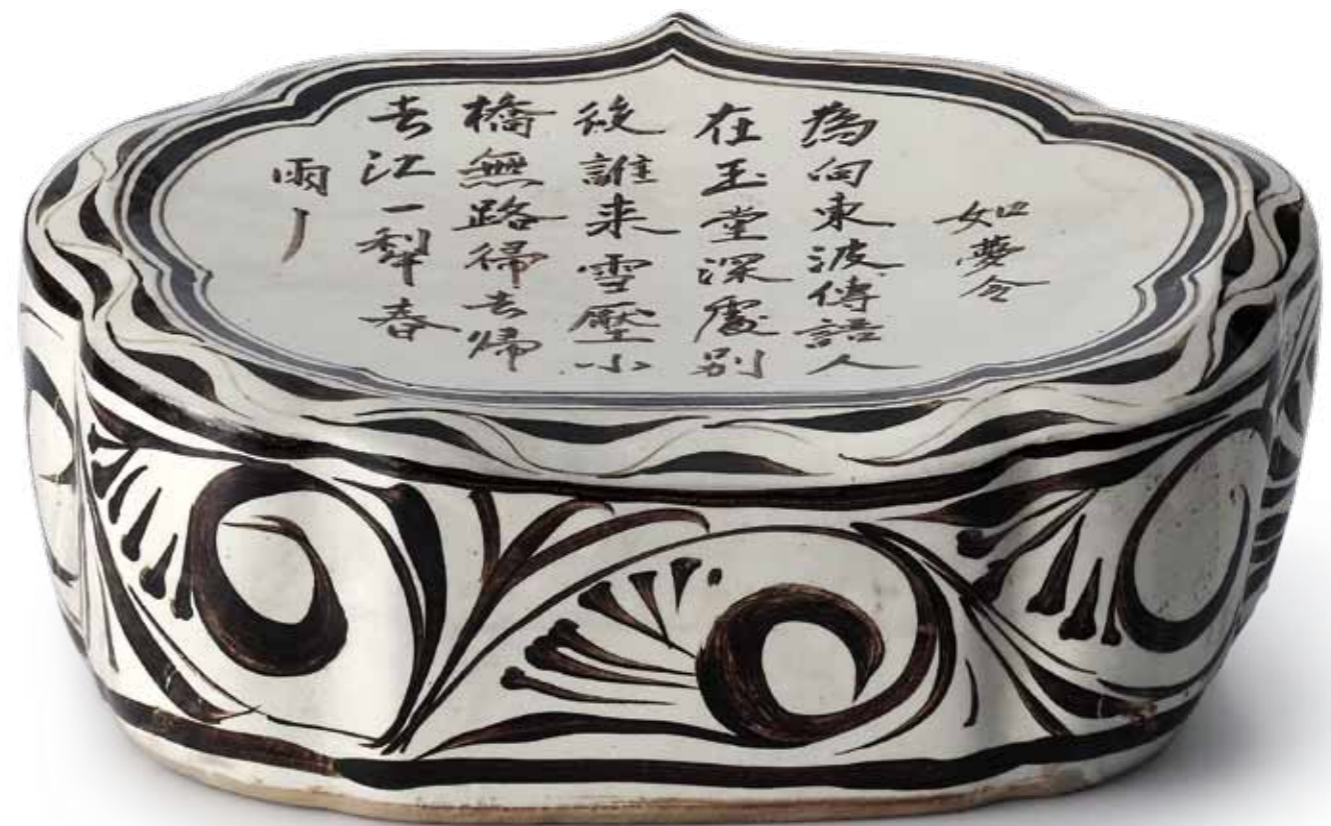 如夢令
為向東波傳語人
在玉堂深處別
後誰来雪壓小
橋無路歸去歸
去江一犁春
雨